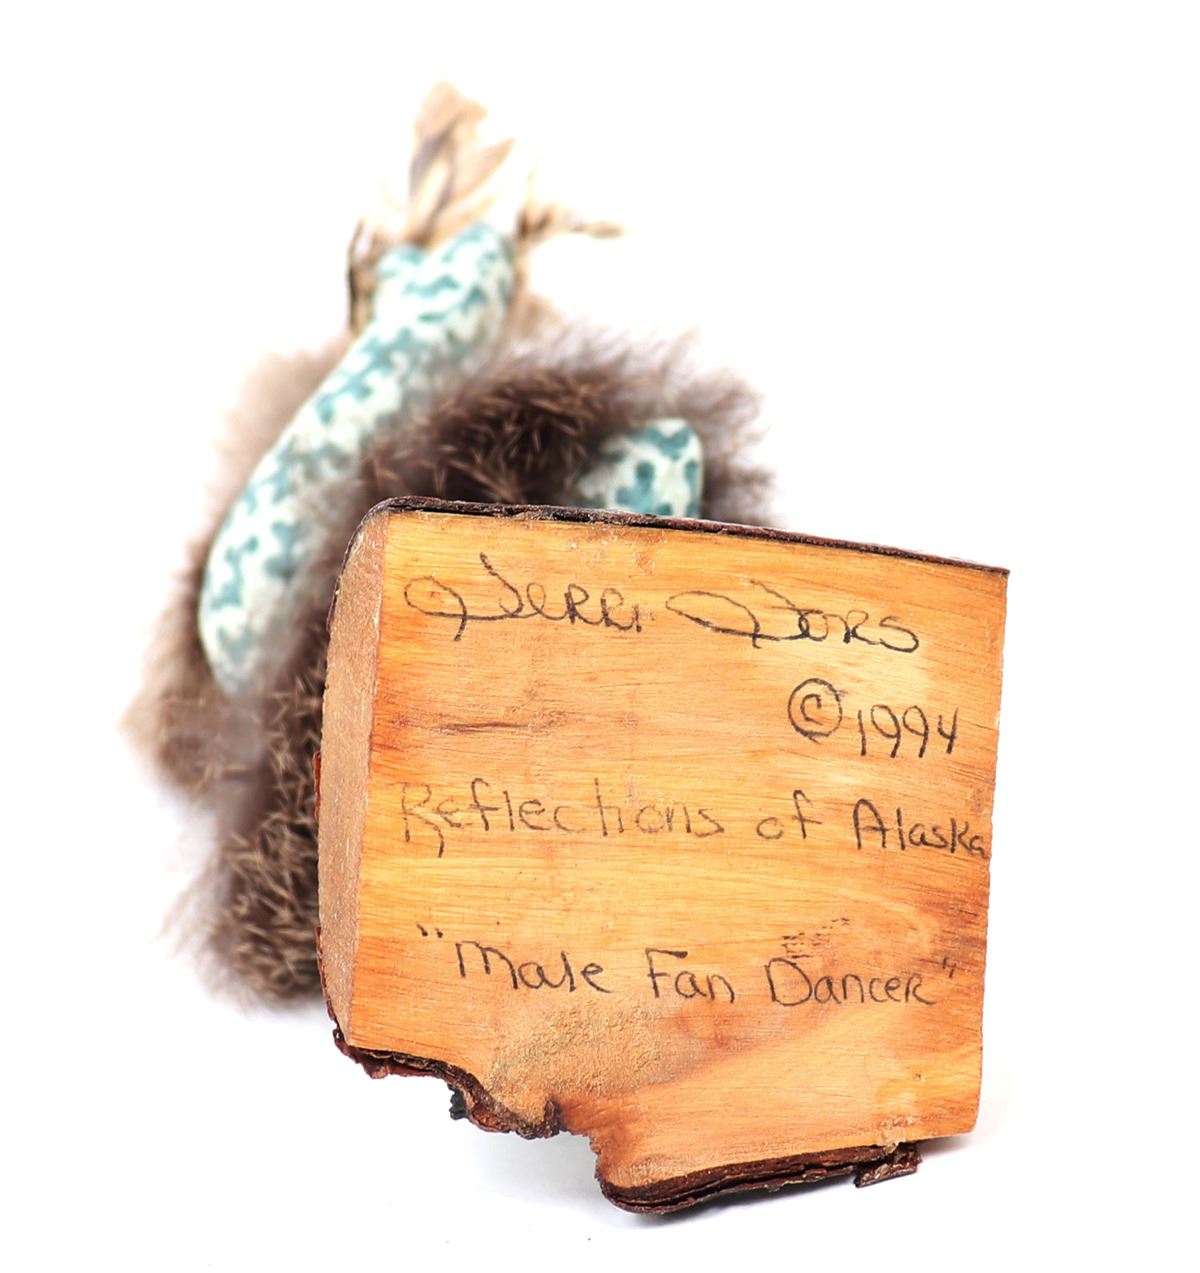 Jerri Jors
© 1994
Reflections of Alaska
"Male Fan Dancer"